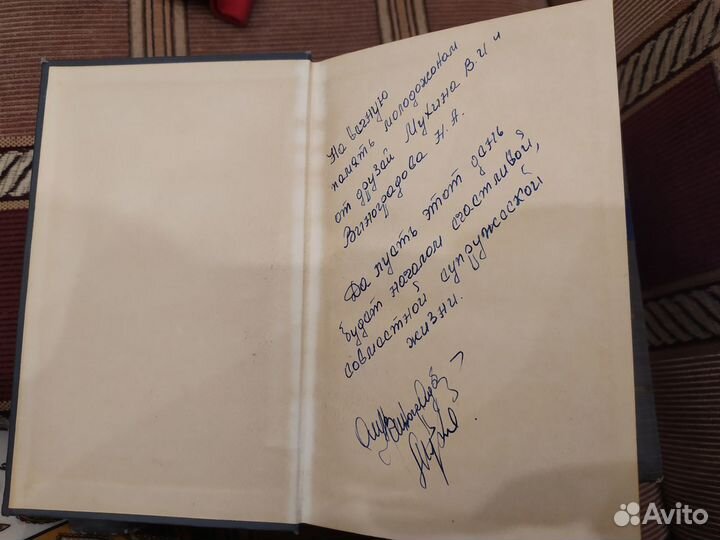 На вечную
память молодожонам
от друзей Мухина В.И и
Виноградова Н.А.
Да пусть этот день
будет началом счастливой,
совместной супружеской
жизни.
Avito